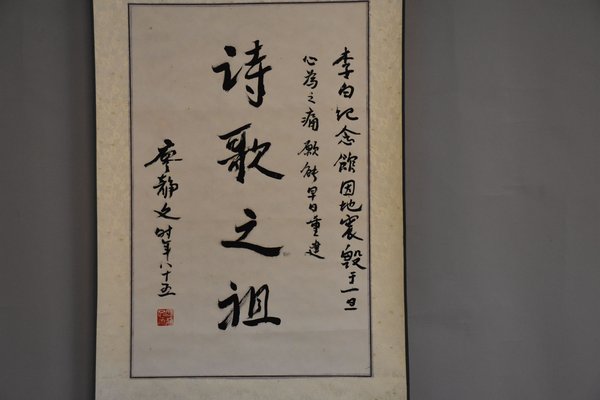 李白纪念館因地震毁于一旦
心為之痛 願能早日重建
诗歌之祖
廖静文时年八十五